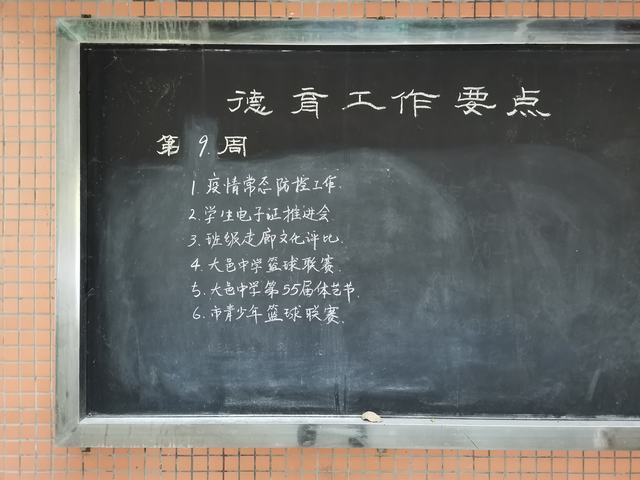 德育工作要点
第9.周
1.疫情常态防控工作.
2.学生电子证推进会
3.班级走廊文化评比.
4.大邑中学篮球联赛.
5.大邑中学第55届体艺节.
6.市青少年篮球联赛.